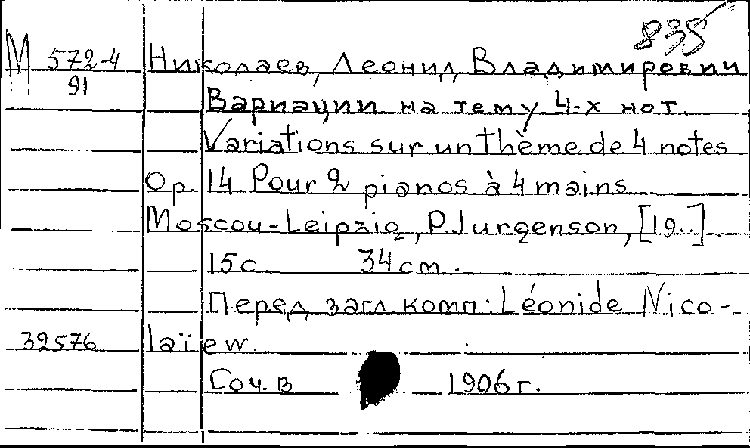 835
М 572-4 Николаев, Леонид Владимирович
91 Вариации на тему 4-х нот.
Variations sur un thème de 4 notes
Op. 14 Pour 2 pianos à 4 mains
Moscou-Leipzig, P. Jurgenson, [19..]
15 с 34 см.
Перед загл. комп.: Léonide Nico-
39576 laïew.
Соч. в 1906 г.